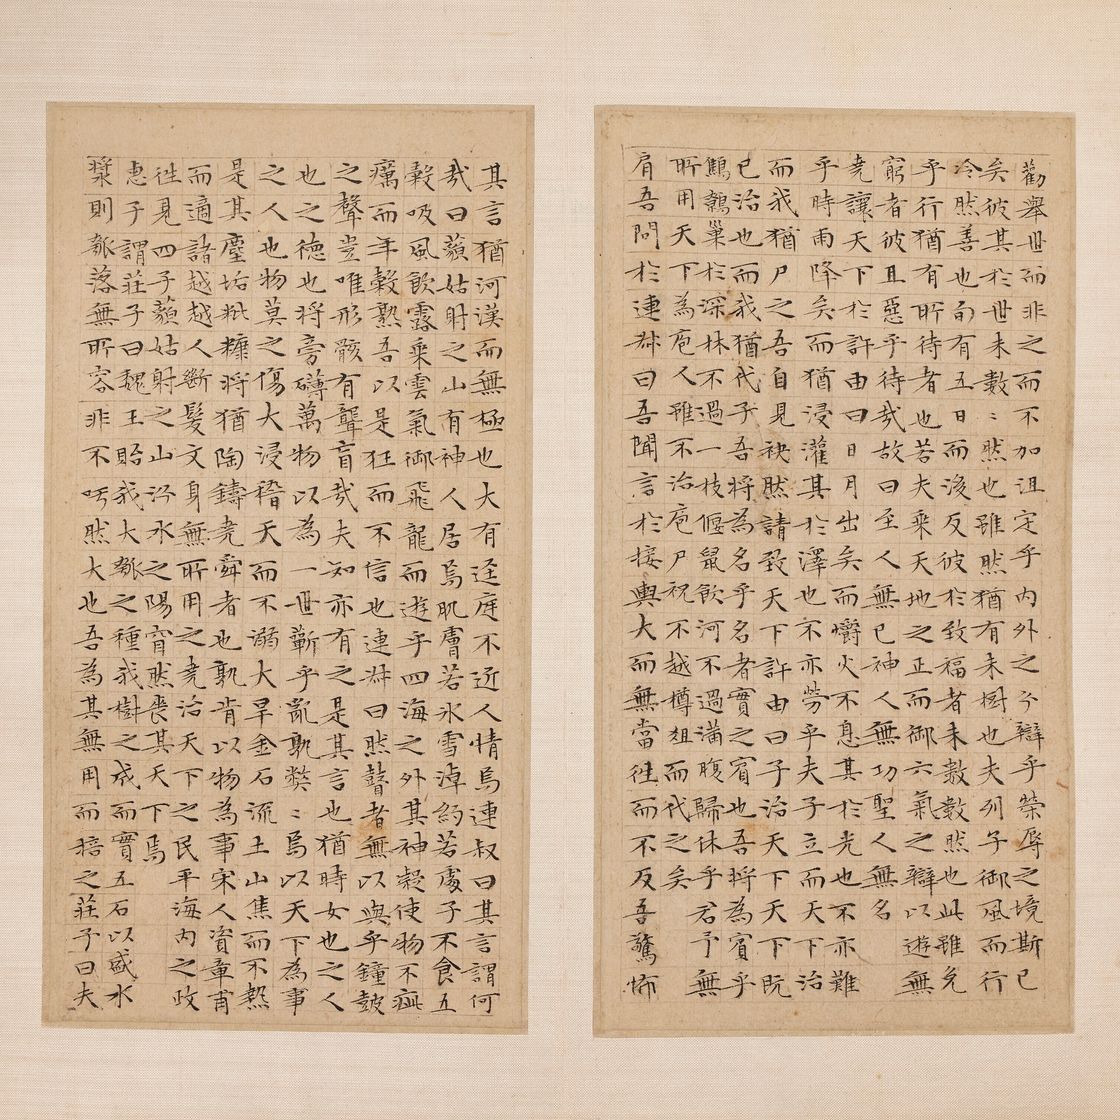 勸舉世而非之而不加沮定乎内外之分辯乎榮辱之境斯已
矣彼其於世未數〻然也雖然猶有未樹也夫列子御風而行
泠然善也旬有五日而後反彼於致福者未數數然也此雖免
乎行猶有所待者也若夫乘天地之正而御六氣之辯以遊無
窮者彼且惡乎待哉故曰至人無已神人無功聖人無名
堯讓天下於許由曰日月出矣而爝火不息其於光也不亦難
乎時雨降矣而猶浸灌其於澤也不亦勞乎夫子立而天下治
而我猶尸之吾自見袂然請致天下許由曰子治天下天下既
已治也而我猶代子吾將為名乎名者實之賓也吾將為賓乎
鷦鷯巢於深林不過一枝偃鼠飲河不過滿腹歸休乎君予無
所用天下為庖人雖不治庖尸祝不越樽俎而代之矣
肩吾問於連叔曰吾聞言於接輿大而無當往而不反吾驚怖
其言猶河漢而無極也大有逕庭不近人情焉連叔曰其言謂何
哉曰藐姑射之山有神人居焉肌膚若氷雪淖約若處子不食五
穀吸風飲露乘雲氣御飛龍而遊乎四海之外其神凝使物不疵
癘而年穀熟吾以是狂而不信也連叔曰然瞽者無以與乎鐘鼓
之聲豈唯形骸有聾盲哉夫知亦有之是其言也猶時女也之人
也之德也將旁礴萬物以為一世蘄乎亂孰弊〻焉以天下為事
之人也物莫之傷大浸稽天而不溺大旱金石流土山焦而不熱
是其塵垢粃糠將猶陶鑄堯舜者也孰肯以物為事宋人資章甫
而適諸越越人斷髮文身無所用之堯治天下之民平海内之政
往見四子藐姑射之山汾水之陽窅然喪其天下焉
惠子謂莊子曰魏王貽我大瓠之種我樹之成而實五石以盛水
漿則瓠落無所容非不呺然大也吾為其無用而掊之莊子曰夫